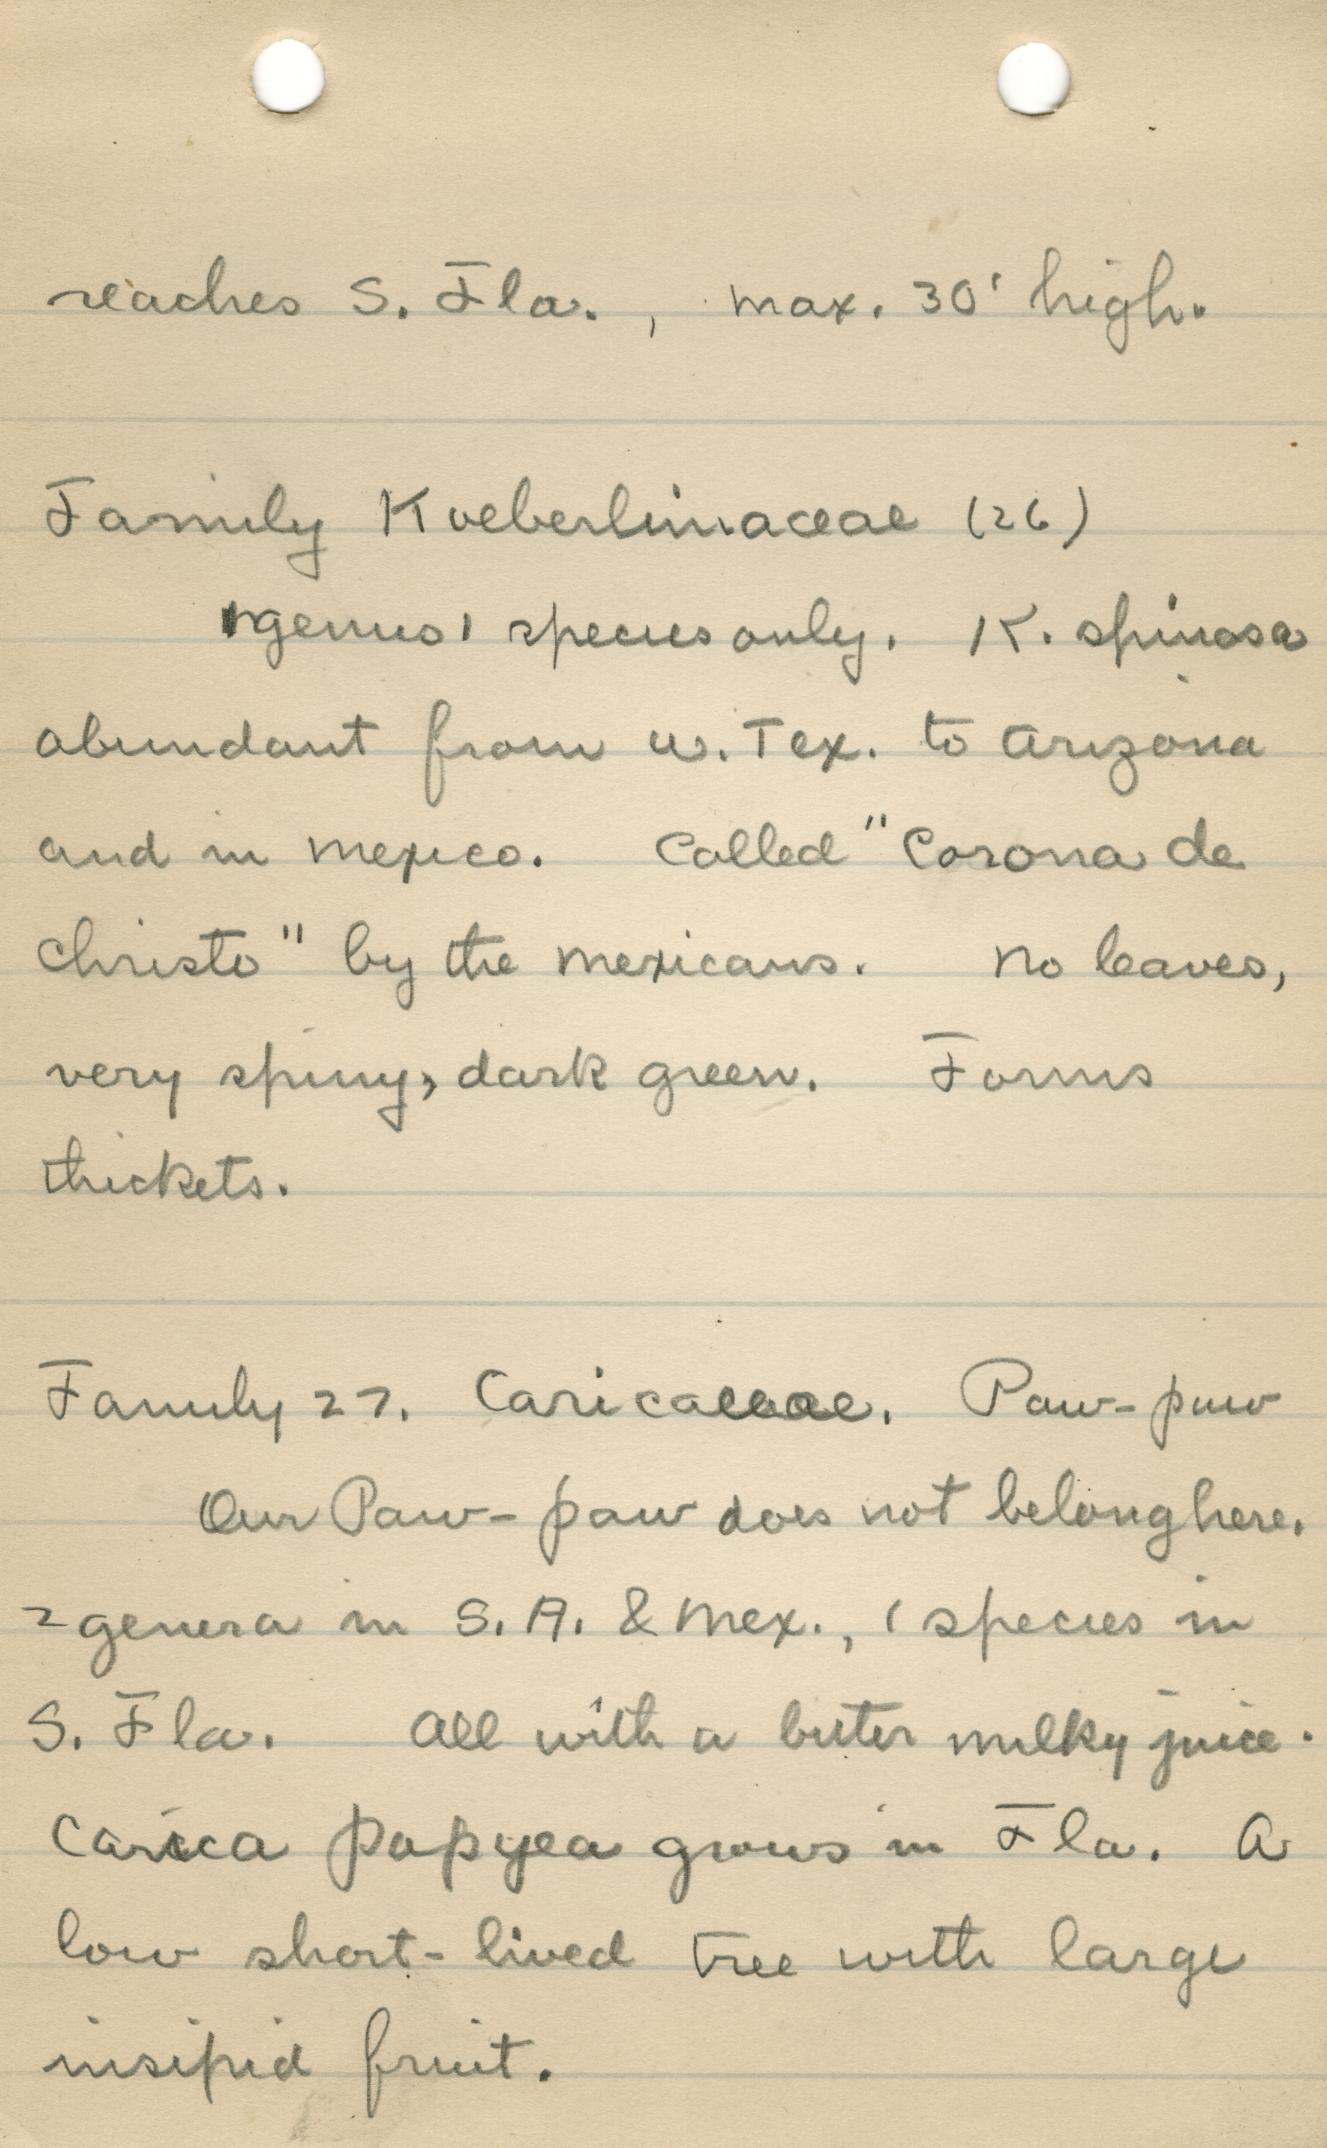 reaches S. Fla. , max. 30' high.
Family Koeberliniaceae (26)
1 genus 1 species only. K. spinosa
abundant from w. Tex. to Arizona
and in Mexico. Called "Corona de
Christo" by the Mexicans. No leaves,
very spiny, dark green. Forms
thickets.
Family 27. Caricaceae. Paw-paw
Our Paw-paw does not belong here.
2 genera in S. A. & Mex., 1 species in
S. Fla. All with a bitter milky juice.
Carica papyea grows in Fla. A
low short-lived tree with large
insipid fruit.